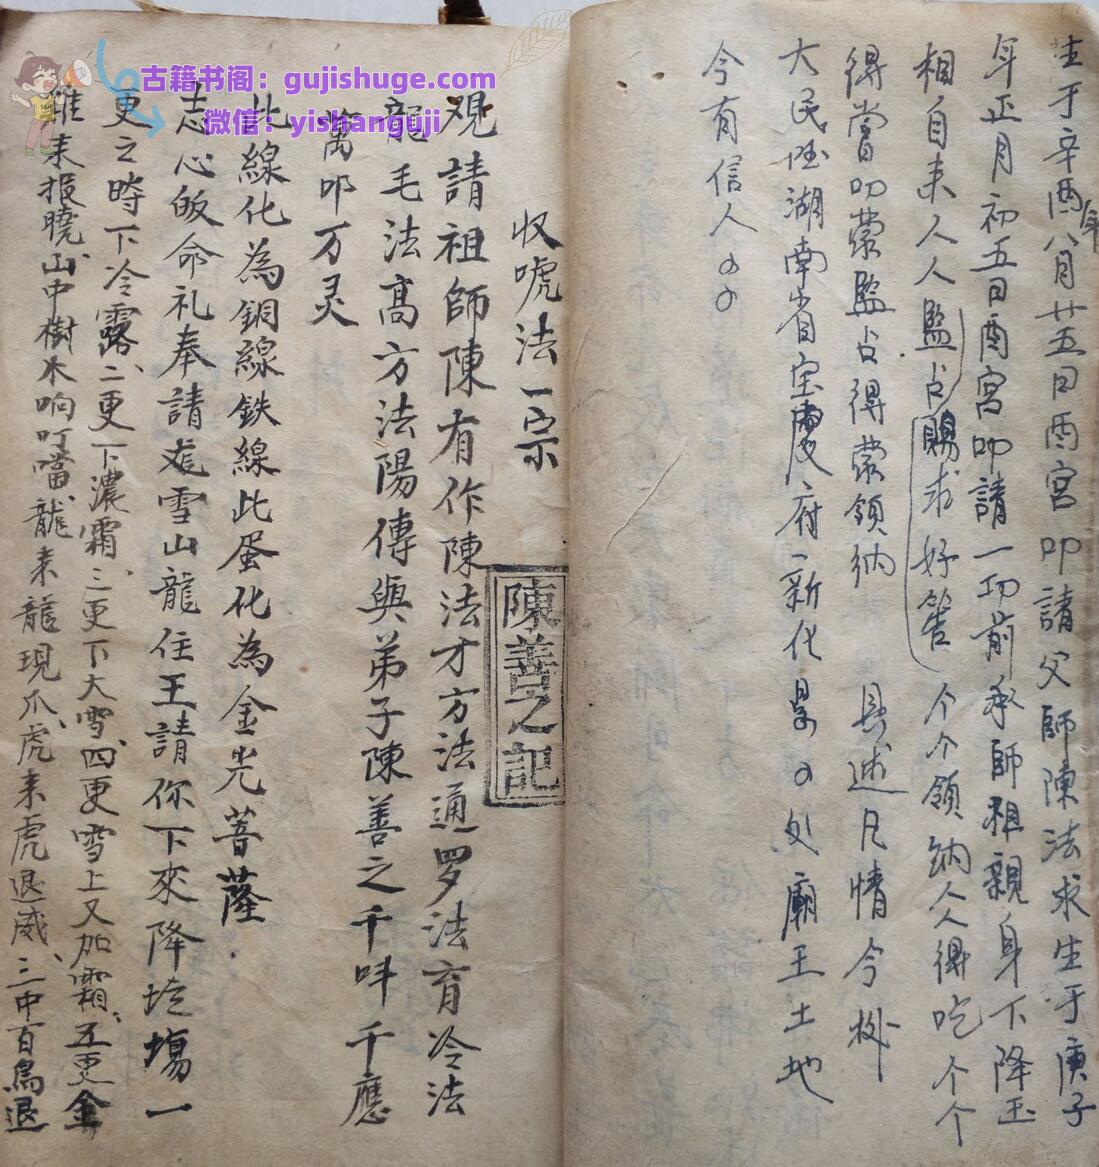 古籍书阁：gujishuge.com
微信：yishanguji
生于辛酉年八月廿五日酉宮叩請父師陳法求生于庚子
年正月初五日酉宮叩請一切前承師祖親身下降玉
相自来人人監占賜求好筶个个領納人人得吃个个
得嘗叩蒙監占得蒙領納 具述凡情今㨂
大民国湖南省宝慶府新化県の处廟王土地
今有信人の の
收唬法一宗
陳善之記
观請祖師陳有作陳法才方法通罗法育冷法
龍毛法高方法陽傳與弟子陳善之千叫千應
萬叩万灵
此線化為銅線鉄線此蛋化為金光菩薩
志心皈命礼奉請雪山龍住王請你下來降坮塲一
更之時下冷露、二更下濃霜、三更下大雪、四更雪上又加霜、五更金
雞来报曉、山中樹木响叮噹、龍来龍現爪、虎来虎退威、三中百鳥退